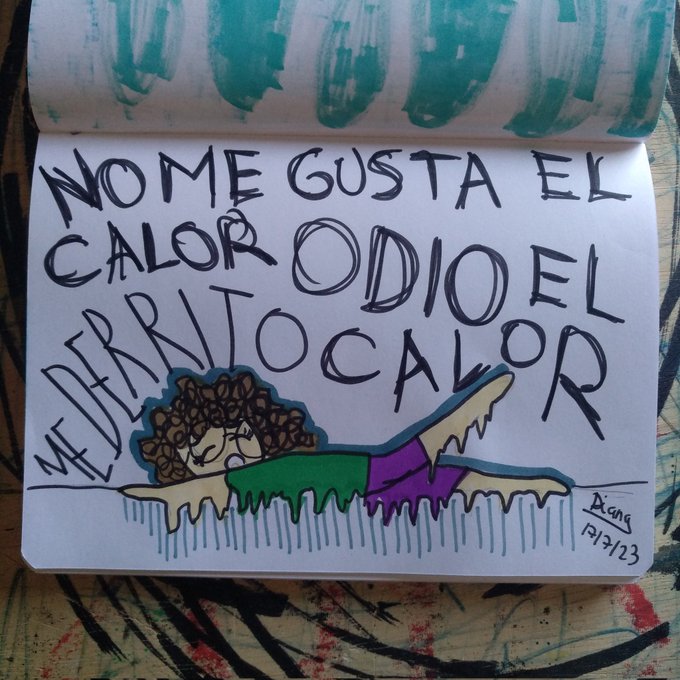 NO ME GUSTA EL
CALOR ODIO EL
CALOR
ME DERRITO
Diana
17/7/23